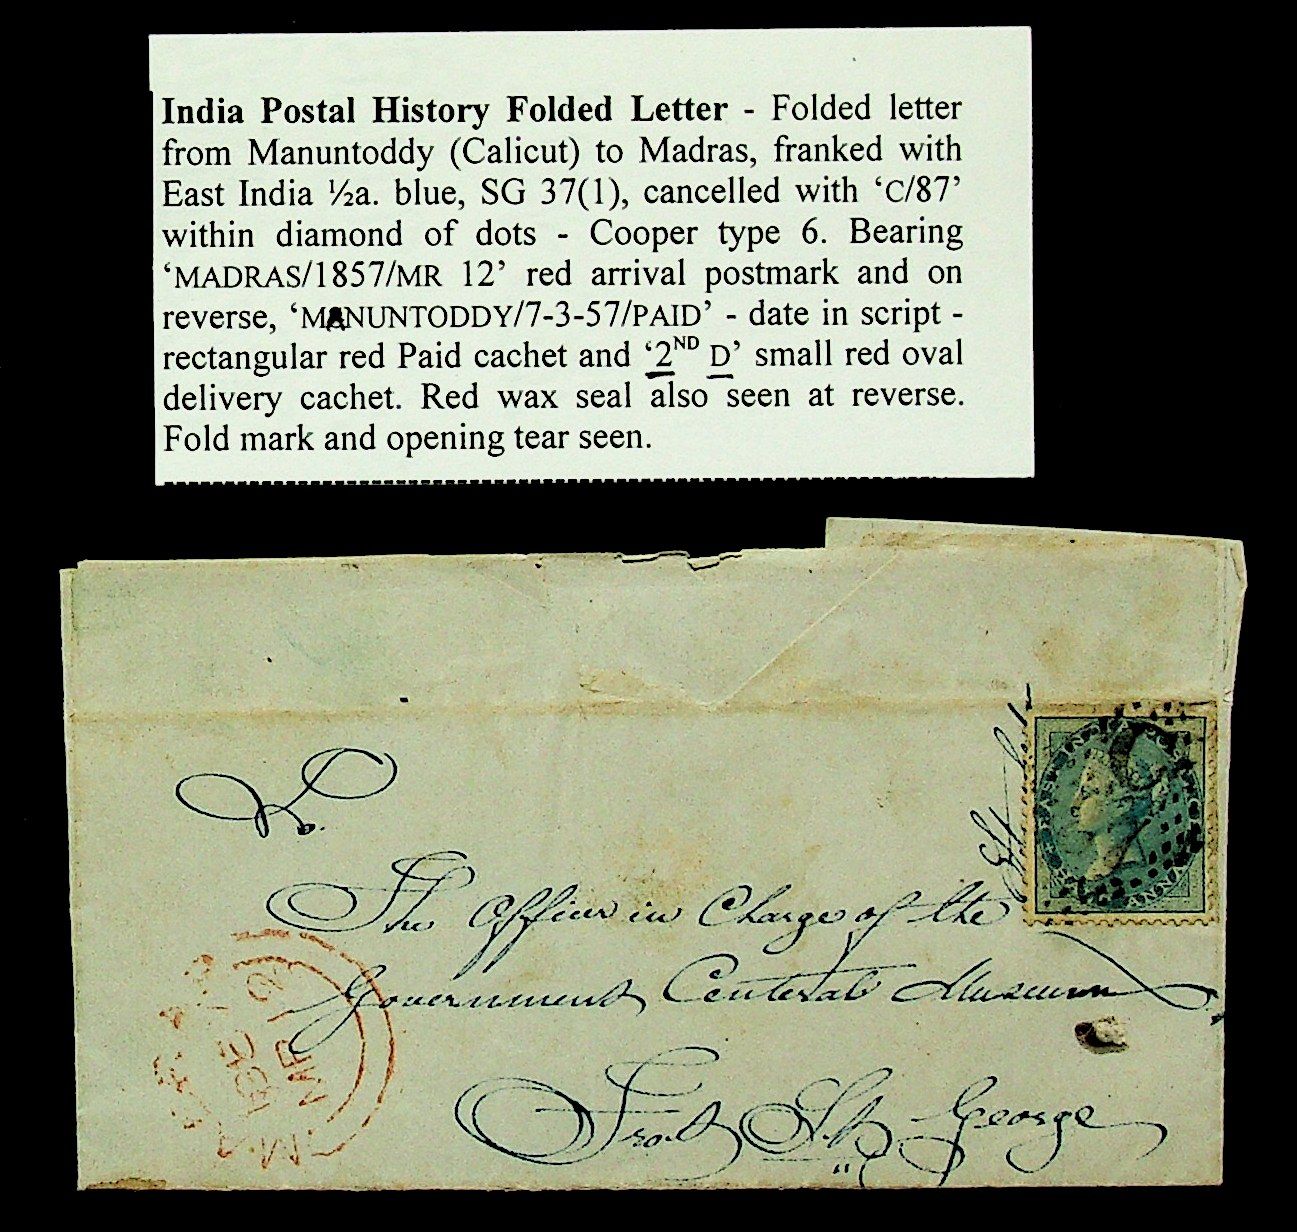 India Postal History Folded Letter - Folded letter
from Manuntoddy (Calicut) to Madras, franked with
East India ½a. blue, SG 37(1), cancelled with ‘C/87’
within diamond of dots - Cooper type 6. Bearing
‘MADRAS/1857/MR 12’ red arrival postmark and on
reverse, ‘MANUNTODDY/7-3-57/PAID’ - date in script -
rectangular red Paid cachet and ‘2ND D’ small red oval
delivery cachet. Red wax seal also seen at reverse.
Fold mark and opening tear seen.
To
The Officer in Charge of the
Government Central Museum
Frot St. George
MR 12